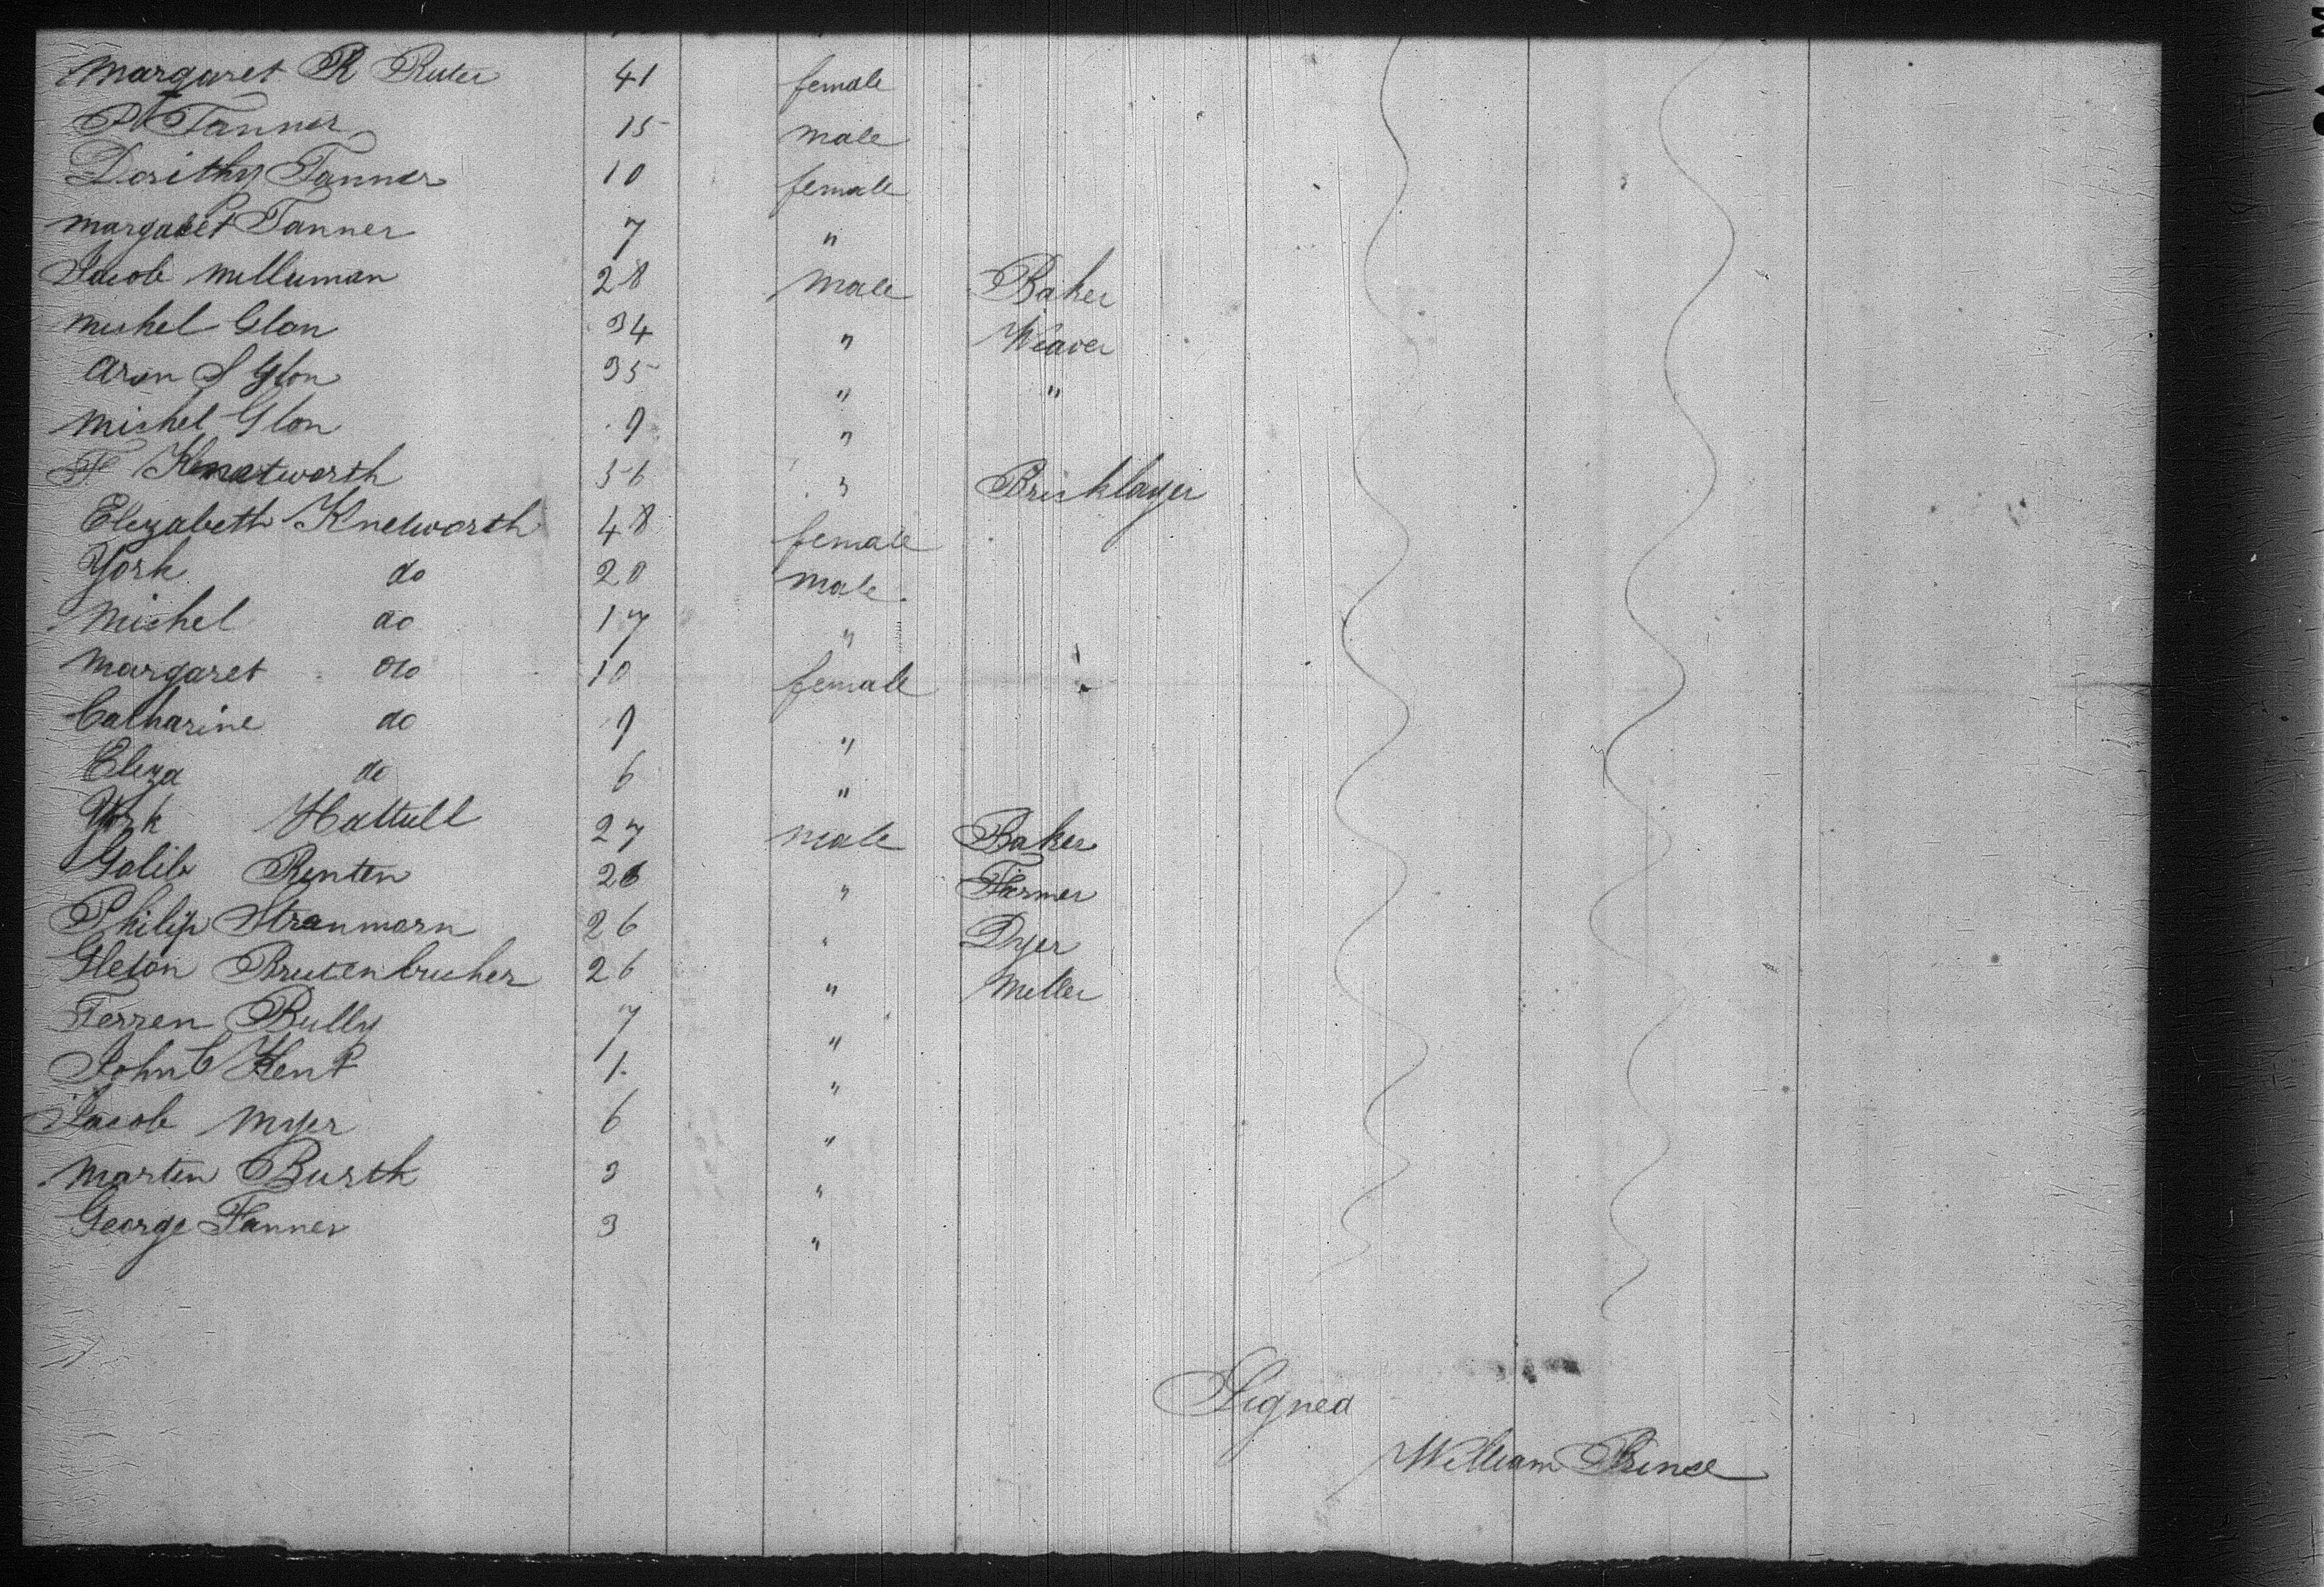 Margaret R Ruter 41 female
P Tanner 15 male
Dorithy Tanner 10 female
Margaret Tanner 7 "
Jacob Milluman 28 male Baker
Michel Glon 34 " Weaver
Aron S Glon 35 " "
Michel Glon 9 "
F Knetworth 56 " Bricklayer
Elizabeth Knetworth 48 female
York do 20 male
Michel do 17 "
Margaret do 10 female
Catharine do 9 "
Eliza do 6 "
York Hattull 27 male Baker
Golib Renten 26 " Farmer
Philip Stranmorn 26 " Dyer
Gleton Brutenbucher 26 " Miller
Ferren Bully 7 "
John C Kent 1 "
Jacob Myer 6 "
Martin Burtk 3 "
George Tanner 3 "
Signed
William Prince